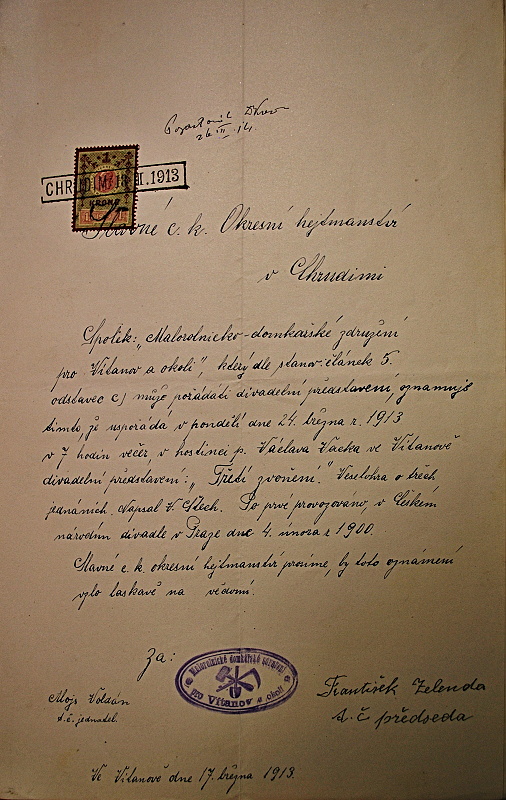 26 III 14.
1
CHRUDIM 18 III.1913
KRONE
Slavné c. k. Okresní hejtmanství
v Chrudimi
Spolek: „Malorolnicko-domkářské združení
pro Vítanov a okolí", který dle stanov článek 5.
odstavec c) může pořádati divadelní představení, oznamuje
tímto, že uspořádá v pondělí dne 24. března r. 1913
v 7 hodin večer v hostinci p. Václava Vacka ve Vítanově
divadelní představení: „Třetí zvonění." Veselohra o třech
jednáních. Napsal V. Štech. Po prvé provozováno v Českém
národním divadle v Praze dne 4. února r. 1900.
Slavné c. k. okresní hejtmanství prosíme, by toto oznámení
vzlo laskavě na vědomí.
Za:
Malorolnické domkářské sdružení
pro Vítanov a okolí
Alojs
t. č. jednatel.
František Zelenda
t. č. předseda
Ve Vítanově dne 17. března 1913.